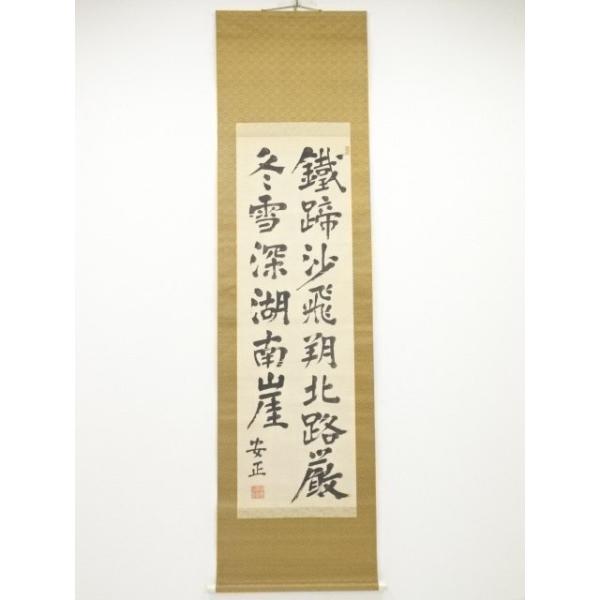 鐵蹄沙飛朔北路厳
冬雪深湖南崖
安正